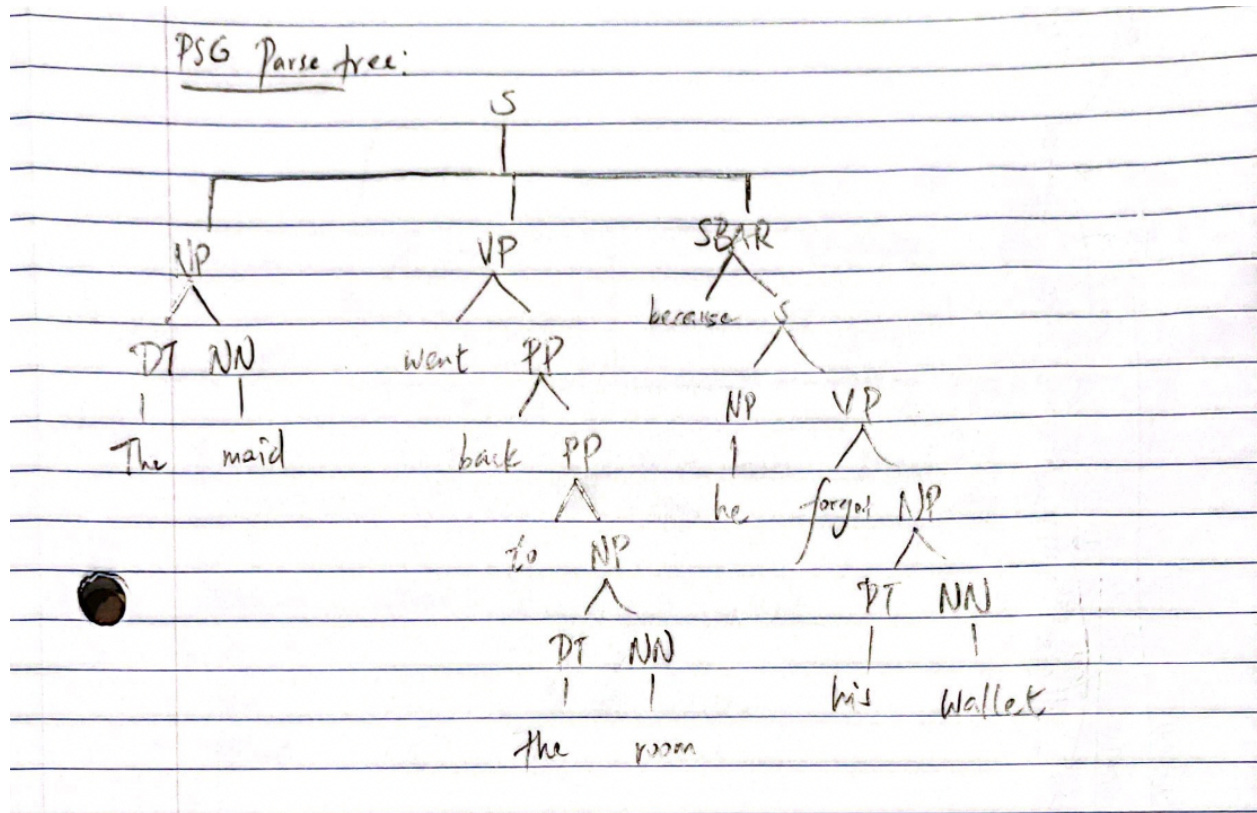 PSG Parse tree:
S
NP VP SBAR
because S
DT NN went PP
NP VP
The maid back PP
he forgot NP
to NP
DT NN
DT NN
his wallet
the room